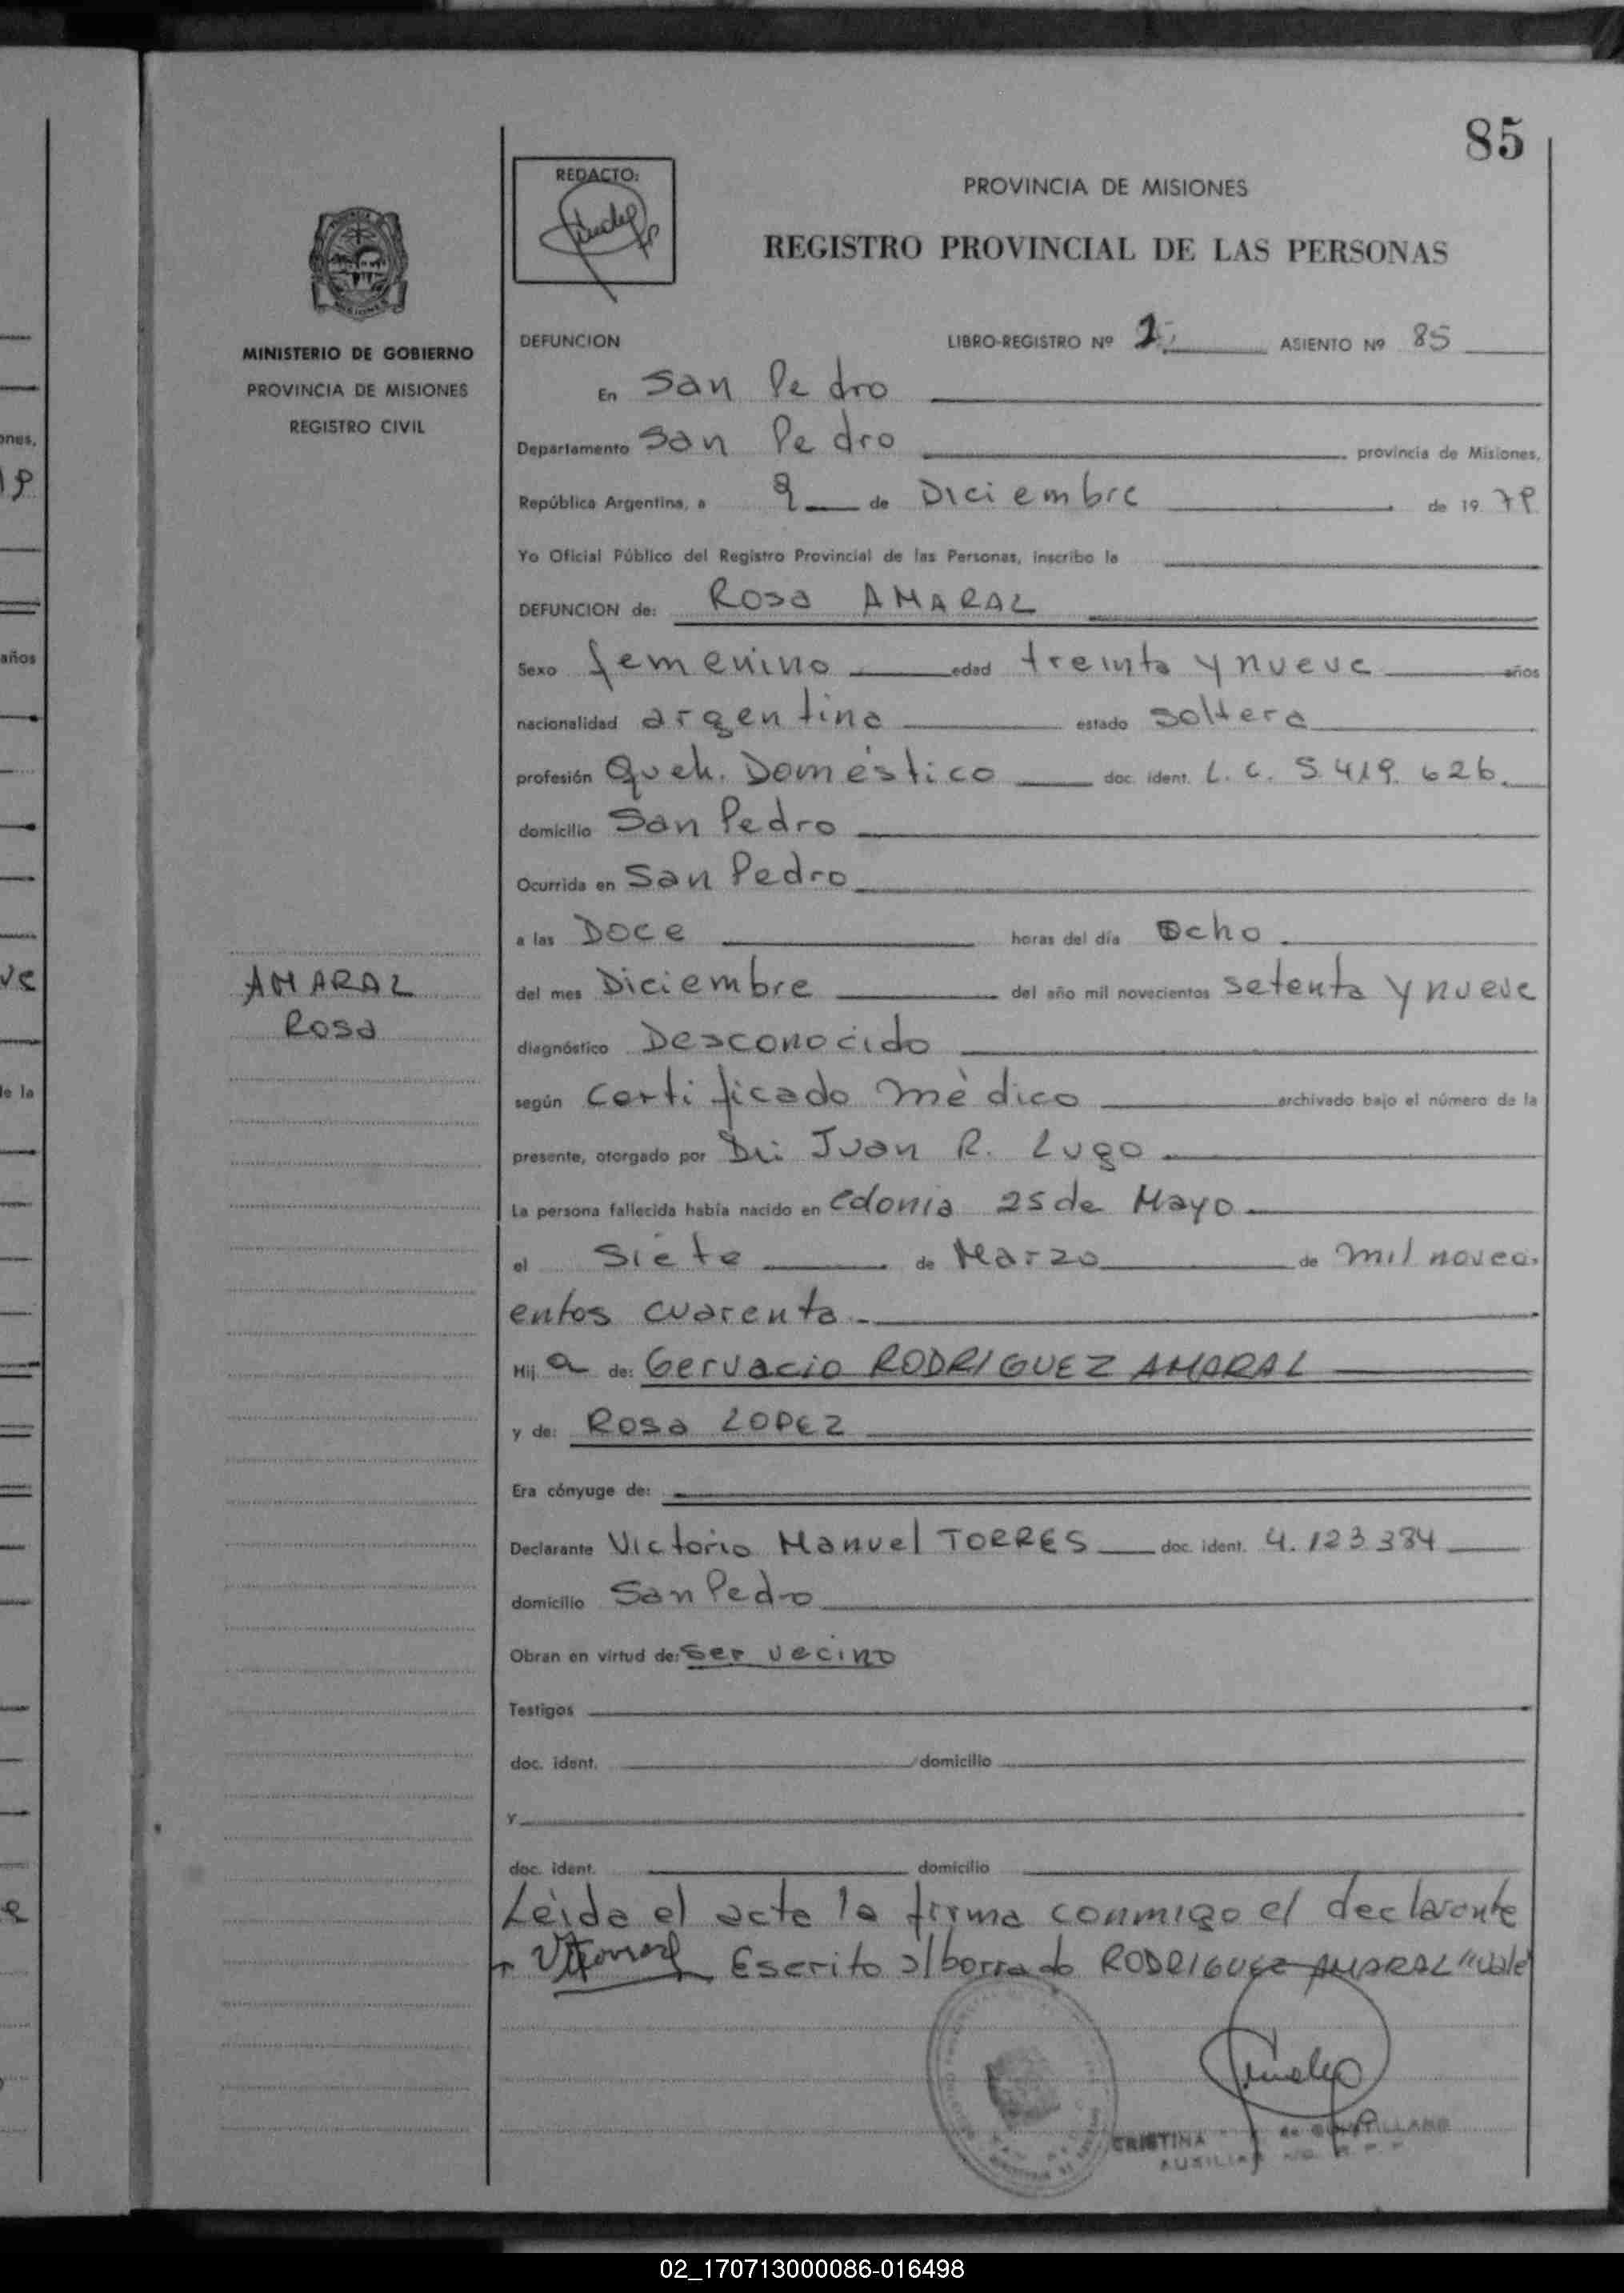 85
REDACTO:
PROVINCIA DE MISIONES
REGISTRO PROVINCIAL DE LAS PERSONAS
MINISTERIO DE GOBIERNO
PROVINCIA DE MISIONES
REGISTRO CIVIL
DEFUNCION LIBRO-REGISTRO Nº ASIENTO Nº 85
En San Pedro
Departamento San Pedro provincia de Misiones,
República Argentina, a 9 de Diciembre de 19 79
Yo Oficial Público del Registro Provincial de las Personas, inscribo la
DEFUNCION de: Rosa AMARAL
Sexo femenino edad treinta y nueve años
nacionalidad argentina estado soltera
profesión Queh. Doméstico doc. ident. L. C. 5.419.626.
domicilio San Pedro
Ocurrida en San Pedro
a las Doce horas del día Ocho
AMARAL
Rosa
del mes Diciembre del año mil novecientos setenta y nueve
diagnóstico Desconocido
según Certificado Mèdico archivado bajo el número de la
presente, otorgado por Dr. Juan R. Lugo
La persona fallecida había nacido en Colonia 25 de Mayo
el Siete de Marzo de mil noveci-
entos cuarenta.
Hij a de: Gervacio RODRIGUEZ AMARAL
y de: Rosa LOPEZ
Era cónyuge de:
Declarante Victorio Manuel TORRES doc. ident. 4.123.334
domicilio San Pedro
Obran en virtud de: ser vecino
Testigos
doc. ident. domicilio
y
doc. ident. domicilio
Lèida el acta la firma conmigo el declarante
Escrito s/borrado RODRIGUEZ AMARAL "vale"
CRISTINA de
AUXILIAR
02_170713000086-016498